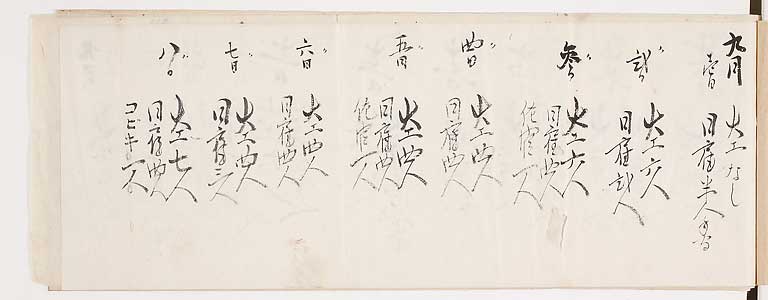 九月
壱日
大工なし
日雇半人
弐日
大工六人
日雇弐人
参日
大工六人
日雇四人
佐官一人
四日
大工四人
日雇四人
五日
大工四人
日雇四人
佐官一人
六日
大工四人
日雇四人
七日
大工四人
日雇三人
八日
大工七人
日雇四人
コビキ一人